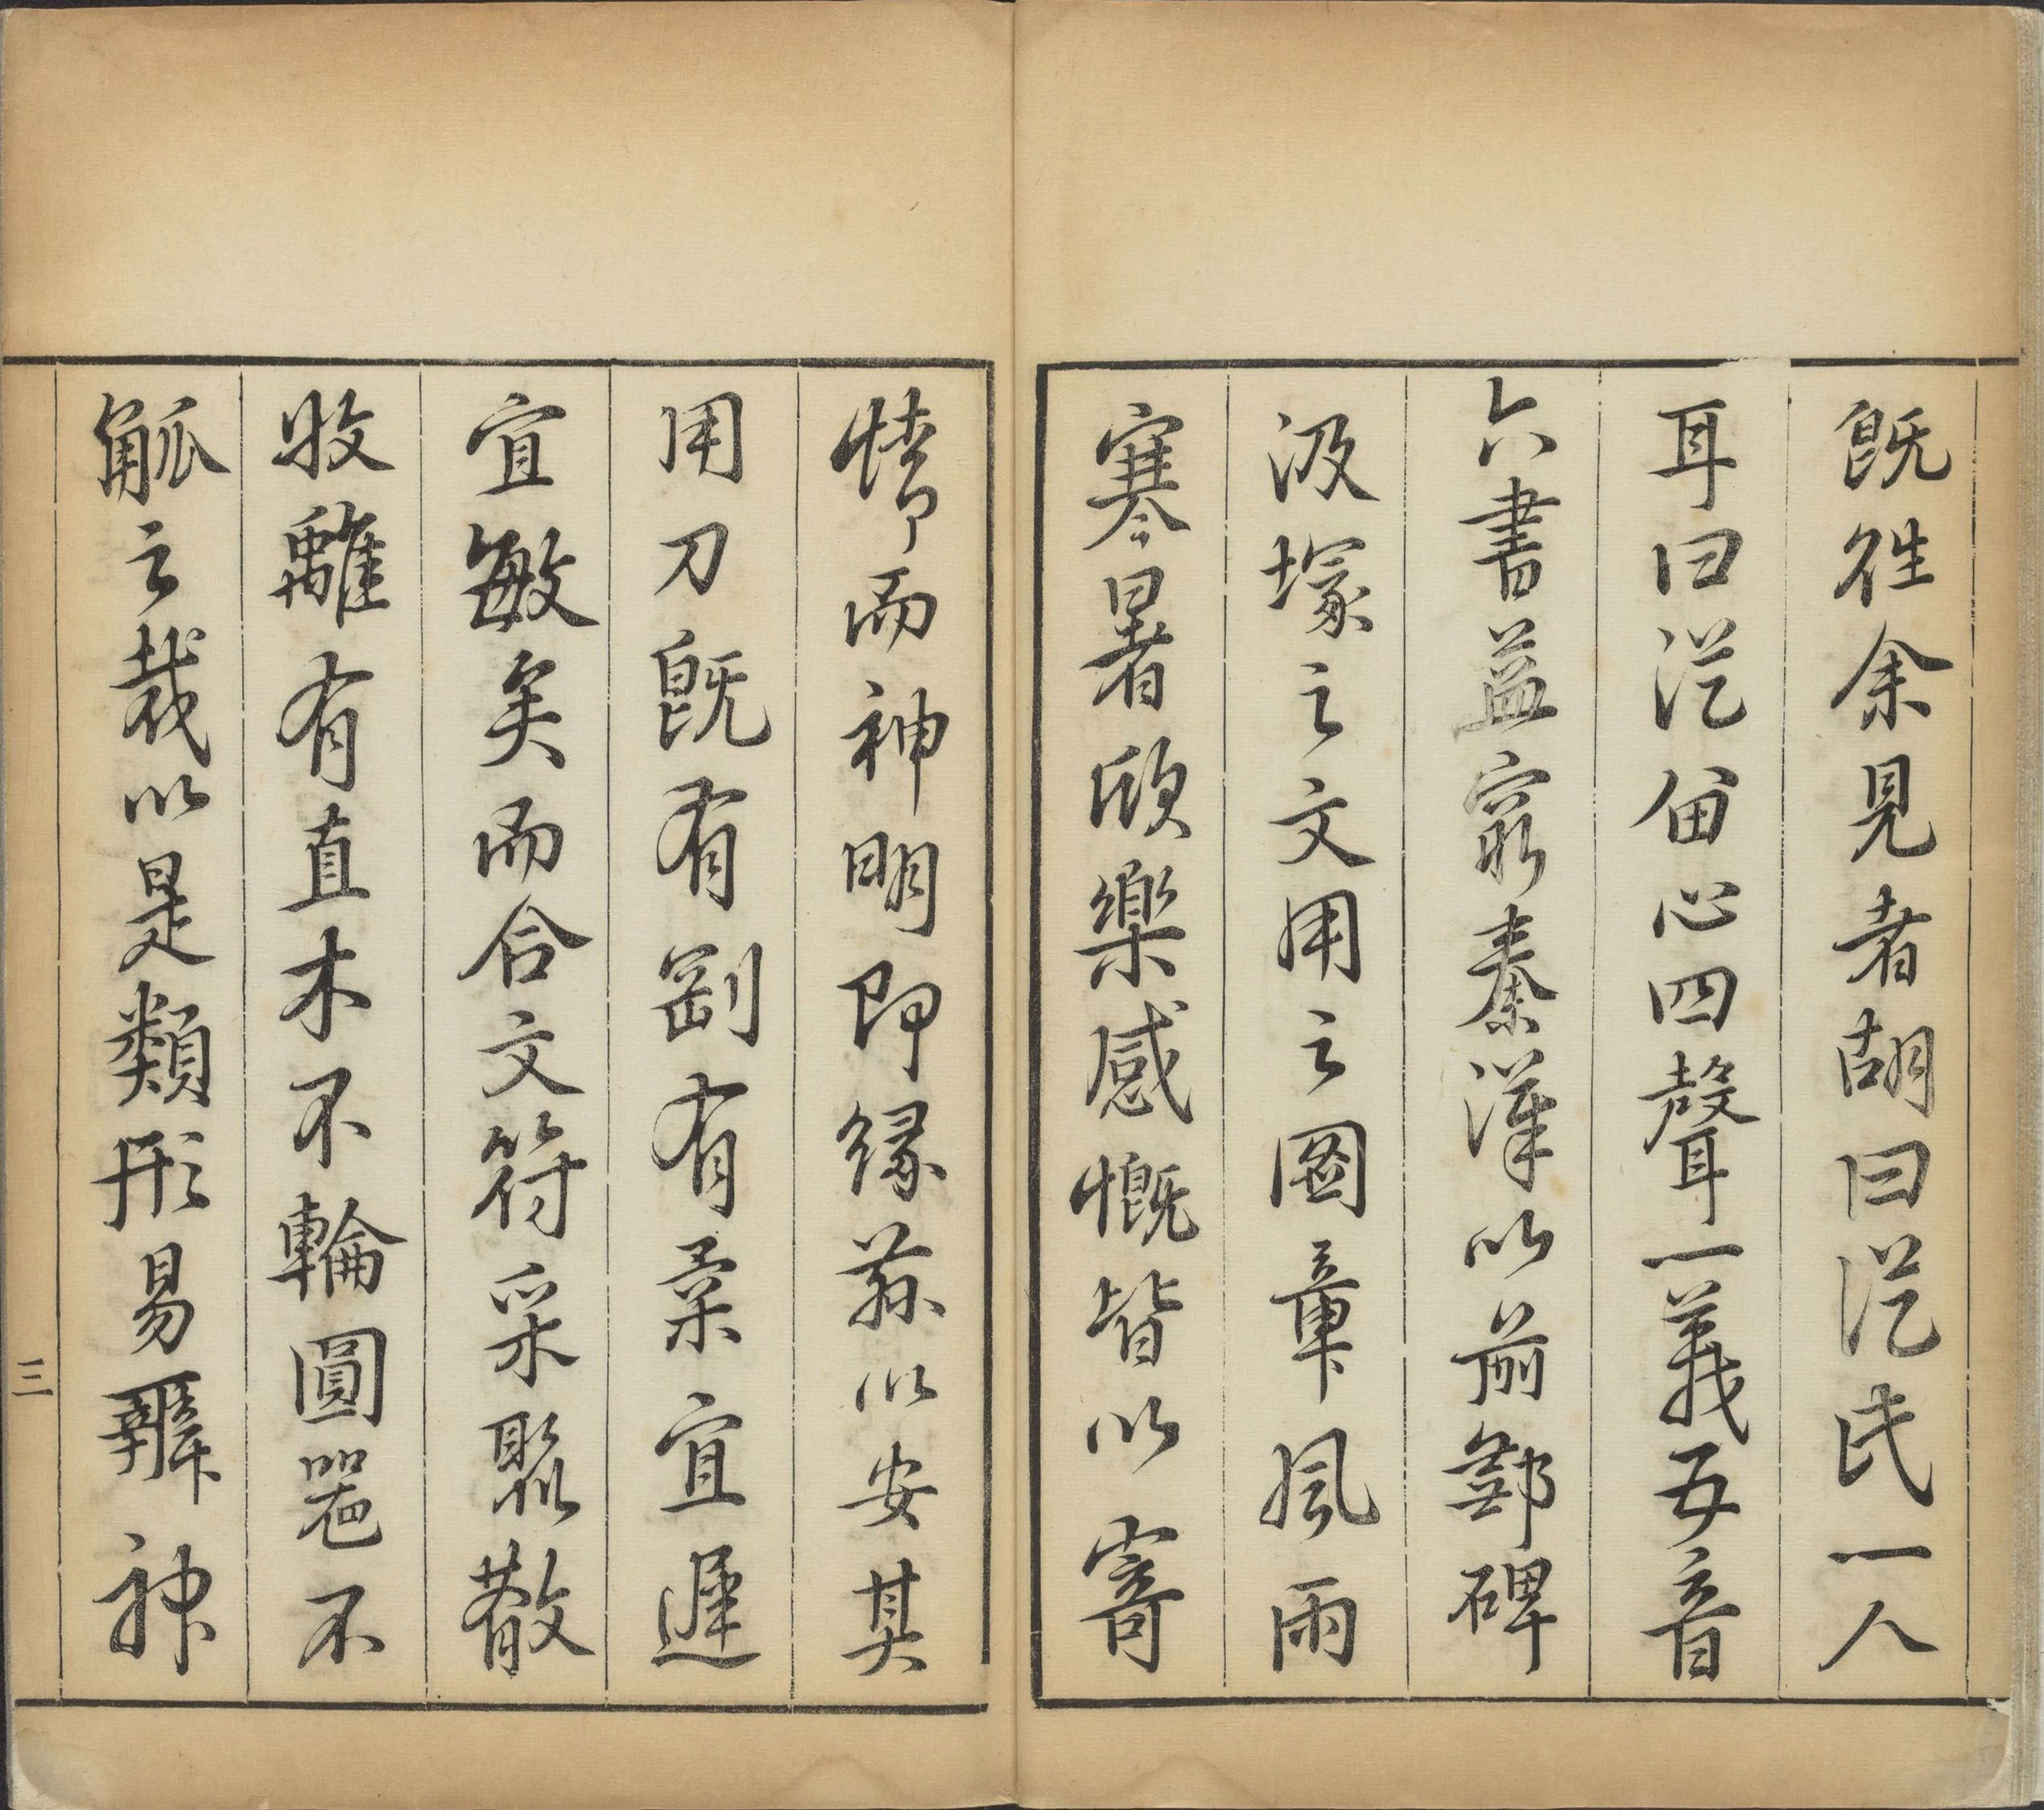 既往余見者胡曰從氏一人
耳曰從留心四聲一義五音
六書益窮秦漢以前鄞碑
汲塚之文用之圖章風雨
寒暑欣樂感慨皆以寄
情而神明即緣茲以安其
用刀既有剛有柔宜遲
宜敏矣而合文符采聚散
收離有直木不輪圓箟不
觚之裁以是類形易辨神
三